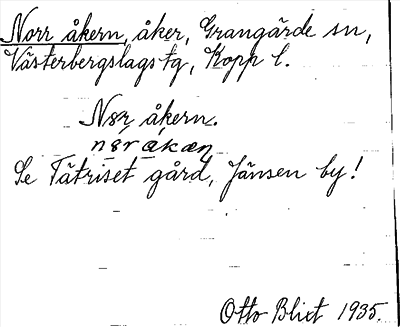 Norr åkern, åker, Grangärde sn,
Västerbergslags fg, Kopp l.
Nør åkern.
nør åkæn
Se Tätriset gård, Jänsen by!
Otto Blixt 1935.